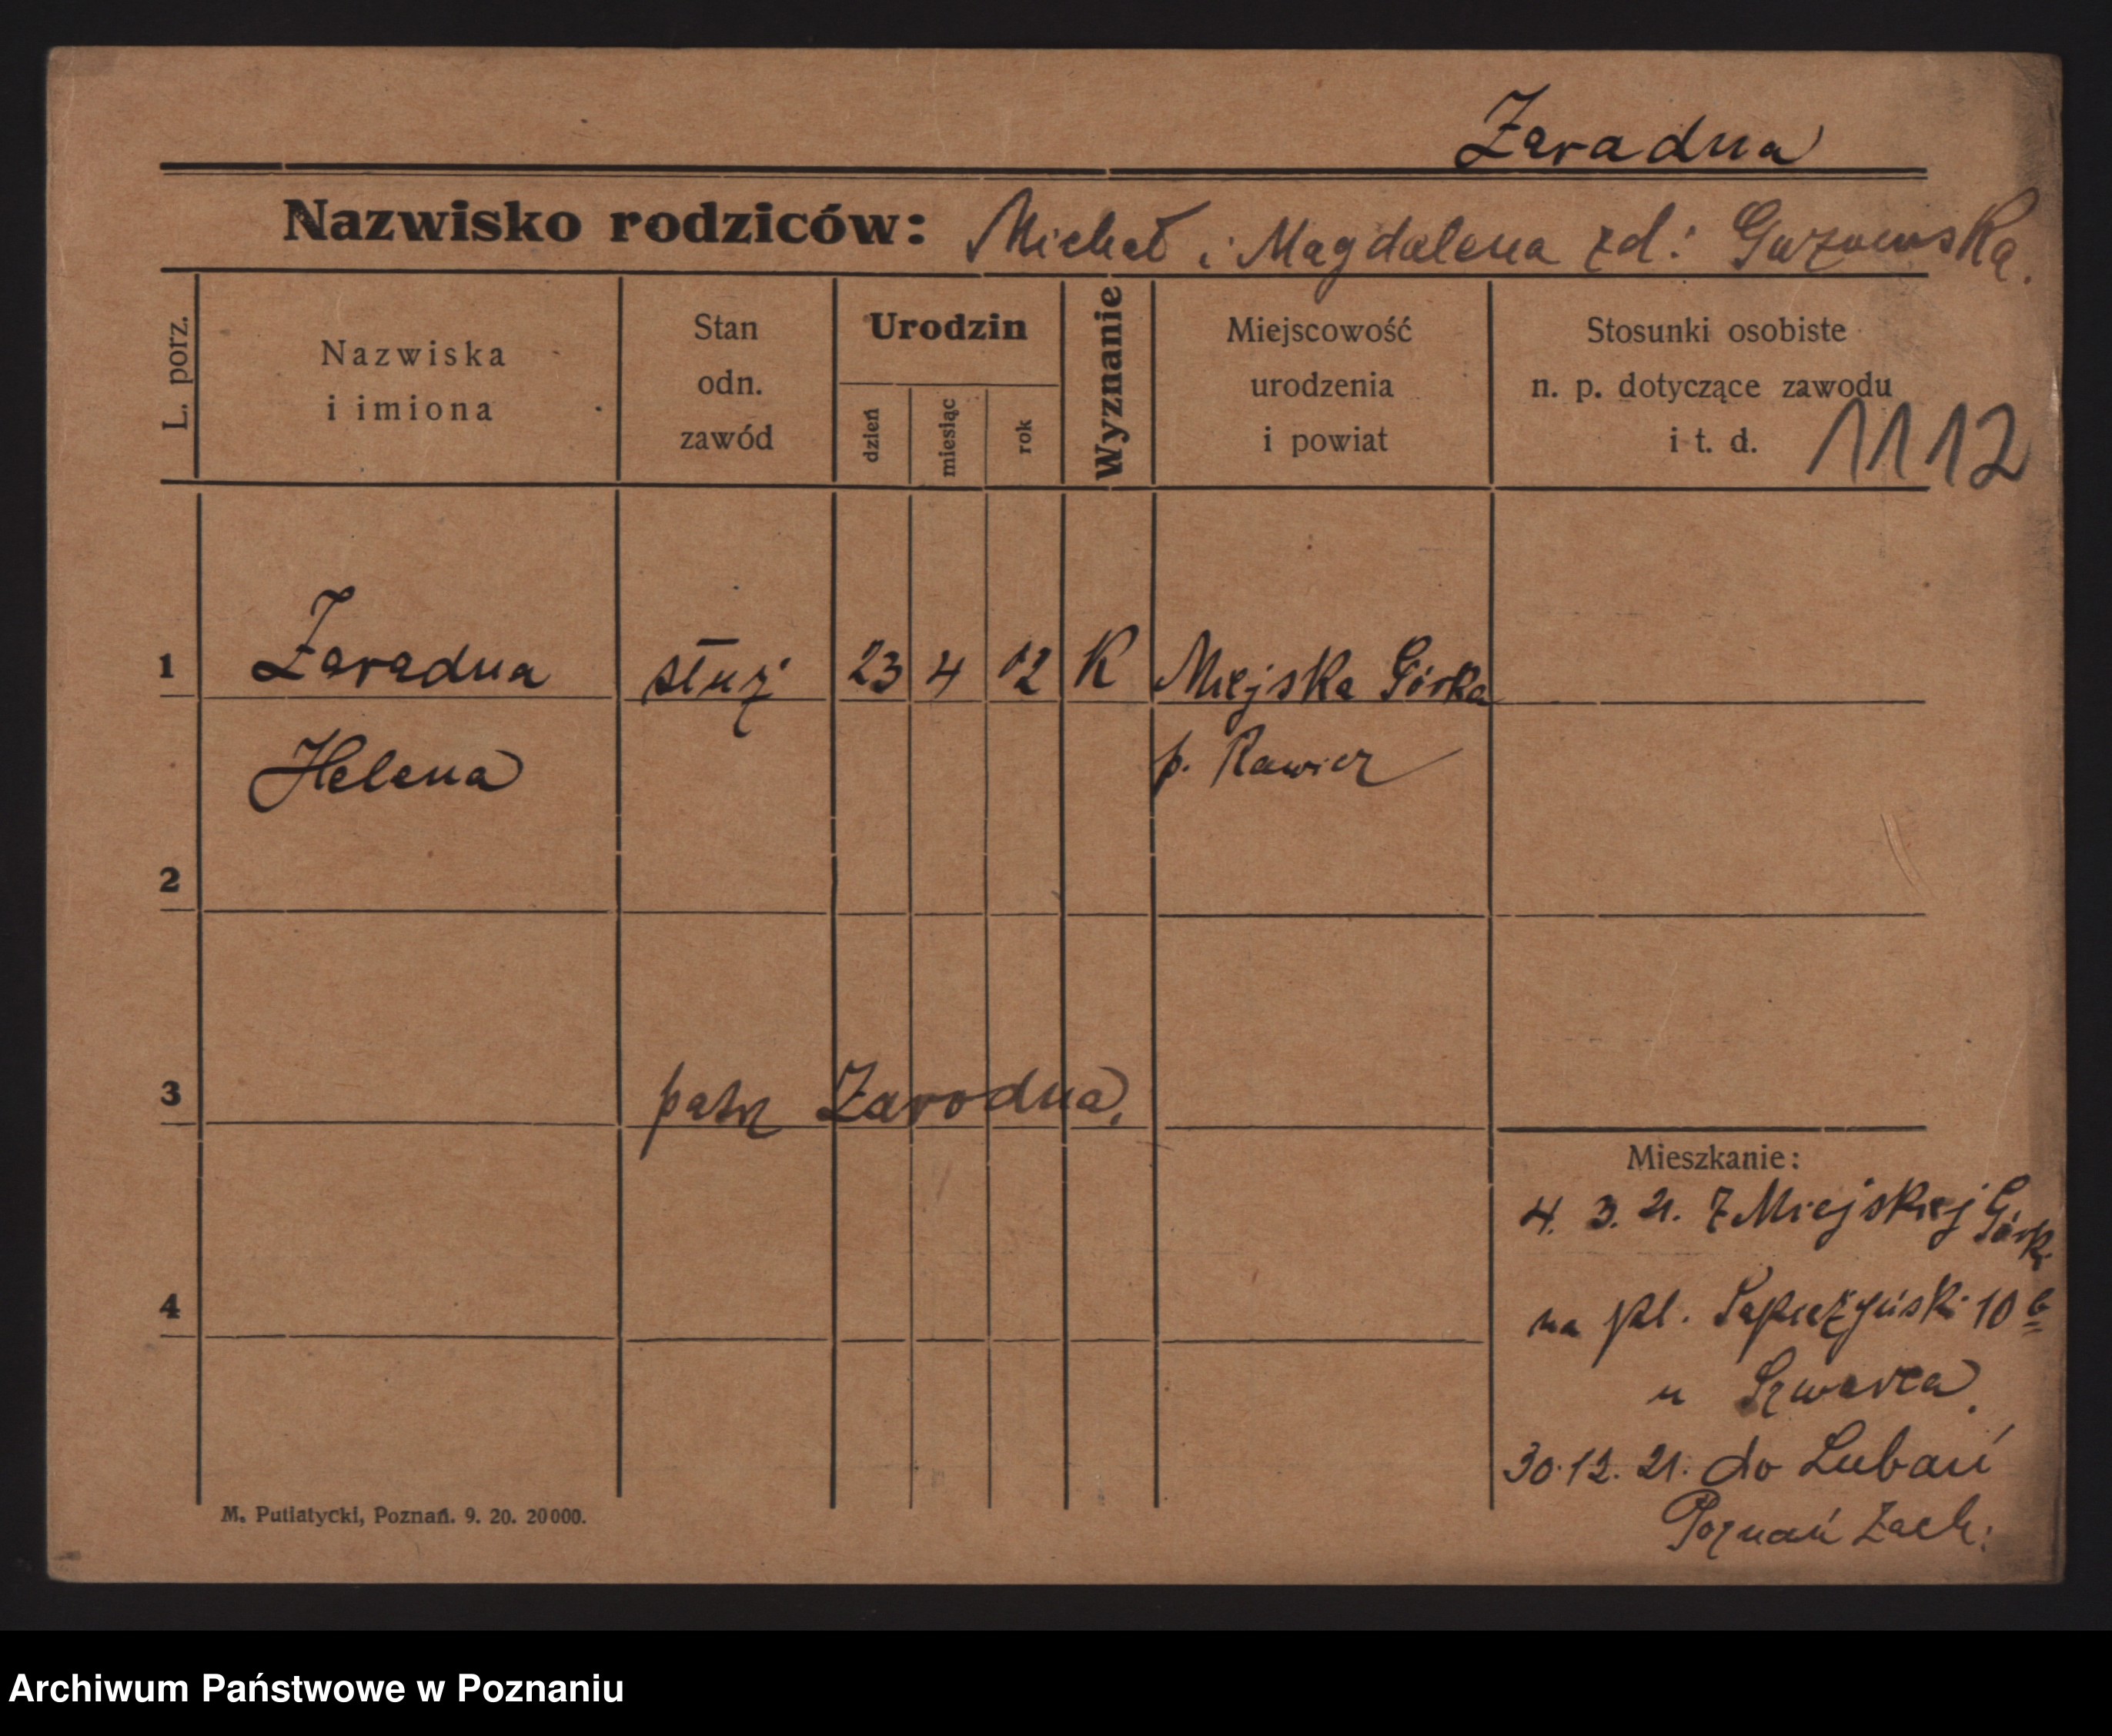 Zaradna
Nazwisko rodziców: Michał i Magdalena zd:
L. porz.
Nazwiska i imiona
Stan odn. zawód
Urodzin
dzień
miesiąc
rok
Wyznanie
Miejscowość urodzenia i powiat
Stosunki osobiste n. p. dotyczące zawodu i t. d.
1112
1 Zaradna służ 23 4 02 K Miejska Górka
Helena p. Rawicz
2
3 patrz Zarodna.
Mieszkanie:
4. 3. 21. z Miejskiej Górk.
4 na pl. Sapieżyński 10 b
u Szwarca.
30. 12. 21. do Lubań
Poznań Zach.
M. Putiatycki, Poznań. 9. 20. 20000.
Archiwum Państwowe w Poznaniu